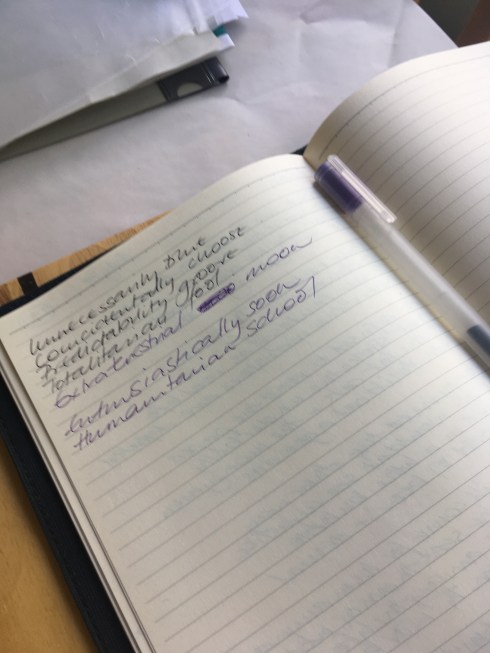 Unnecessarily blue
Coincidentally choose
Predictability groove
Totalitarian fool
Extraterestrial moon
Enthusiastically soon
Humanitarian school